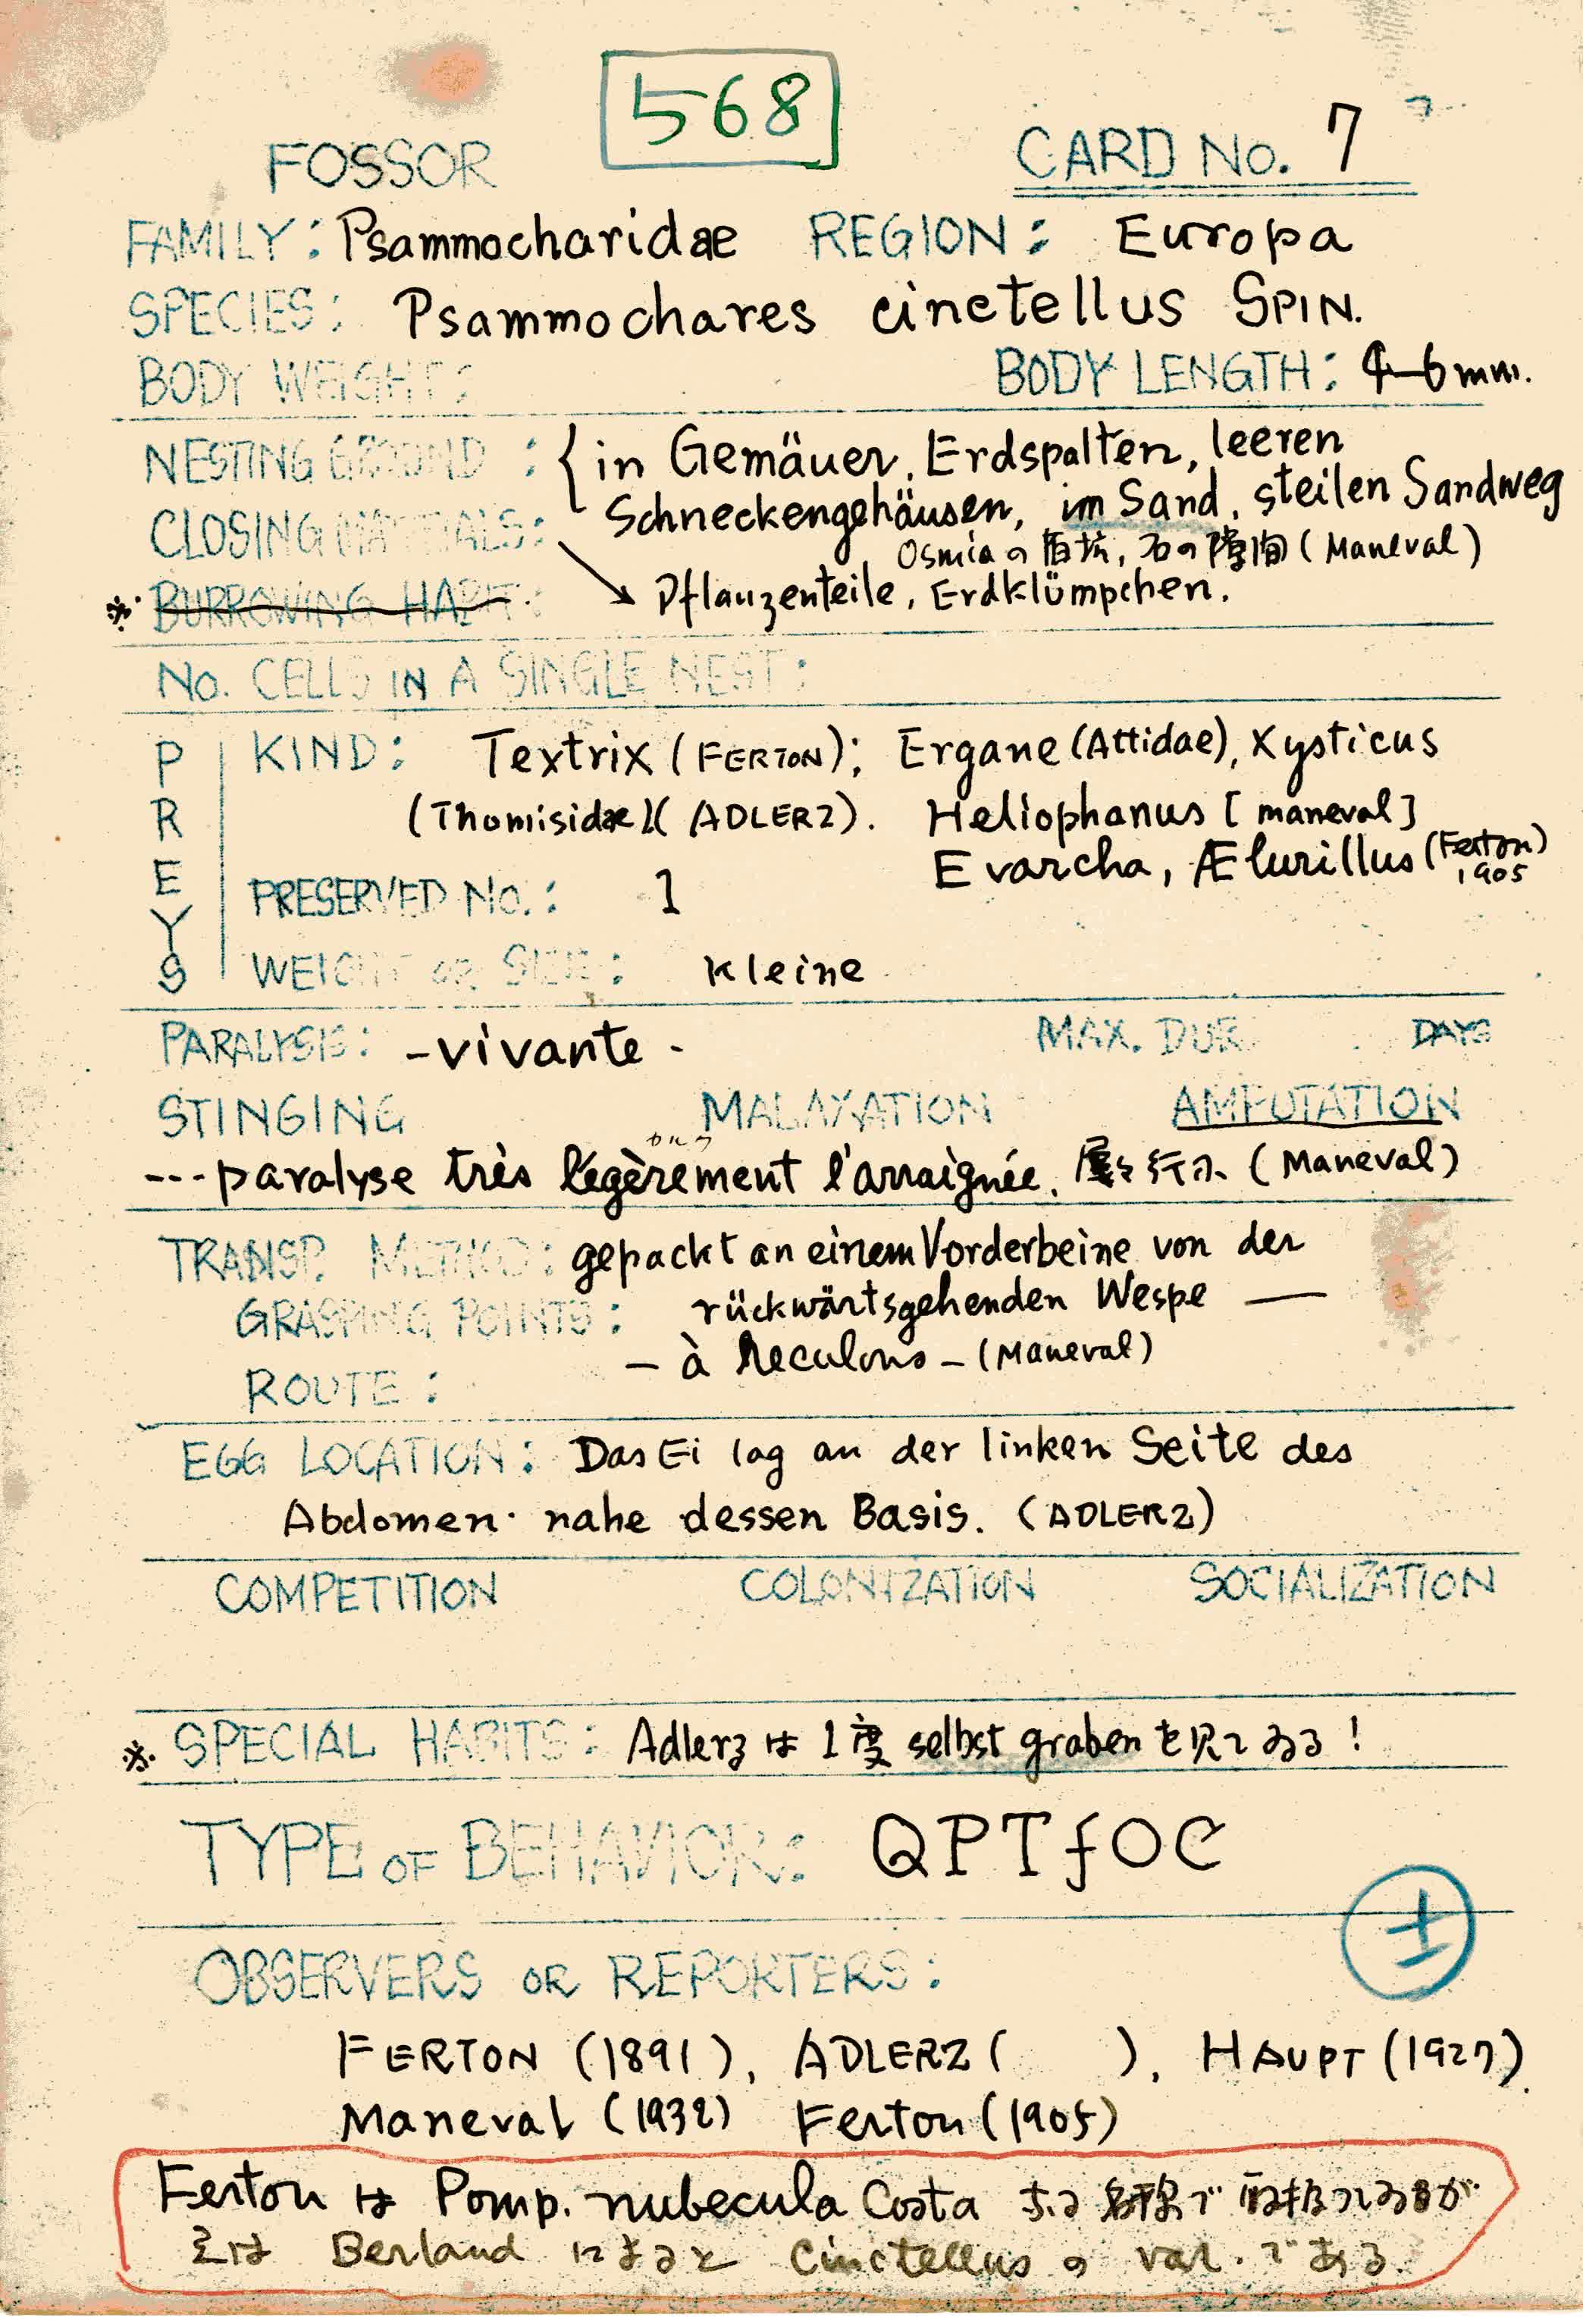 568
FOSSOR CARD No. 7
FAMILY: Psammocharidae REGION: Europa
SPECIES: Psammochares cinctellus SPIN.
BODY WEIGHT: BODY LENGTH: 4–6 mm.
NESTING GROUND: in Gemäuer, Erdspalten, leeren
Schneckengehäusen, im Sand, steilen Sandweg
CLOSING MATERIALS:
Osmiaの 石の (Maneval)
※ BURROWING HABIT: Pflanzenteile, Erdklümpchen.
No. CELLS IN A SINGLE NEST:
PREYS
KIND: Textrix (FERTON); Ergane (Attidae), Xysticus
(Thomisidae)(ADLERZ). Heliophanus [maneval]
Evarcha, Ælurillus (Ferton) 1905
PRESERVED No.: 1
WEIGHT OR SIZE: Kleine
PARALYSIS: -vivante- MAX. DUR. DAYS
STINGING MALAXATION AMPUTATION
カルク
---paralyse très légèrement l'arraignée. 屢々行ふ (Maneval)
TRANSP. METHOD: gepackt an einem Vorderbeine von der
GRASPING POINTS: rückwärtsgehenden Wespe —
– à reculons – (Maneval)
ROUTE:
EGG LOCATION: Das Ei lag an der linken Seite des
Abdomen nahe dessen Basis. (ADLERZ)
COMPETITION COLONIZATION SOCIALIZATION
※ SPECIAL HABITS: Adlerzは1度 selbst grabenを見てゐる!
TYPE OF BEHAVIOR: QPTfOC
±
OBSERVERS OR REPORTERS:
FERTON (1891), ADLERZ ( ), HAUPT (1927)
Maneval (1932) Ferton (1905)
Fertonは Pomp. nubecula Costa なる 名で ゐるが
之は Berland によると Cinctellusの var. である.